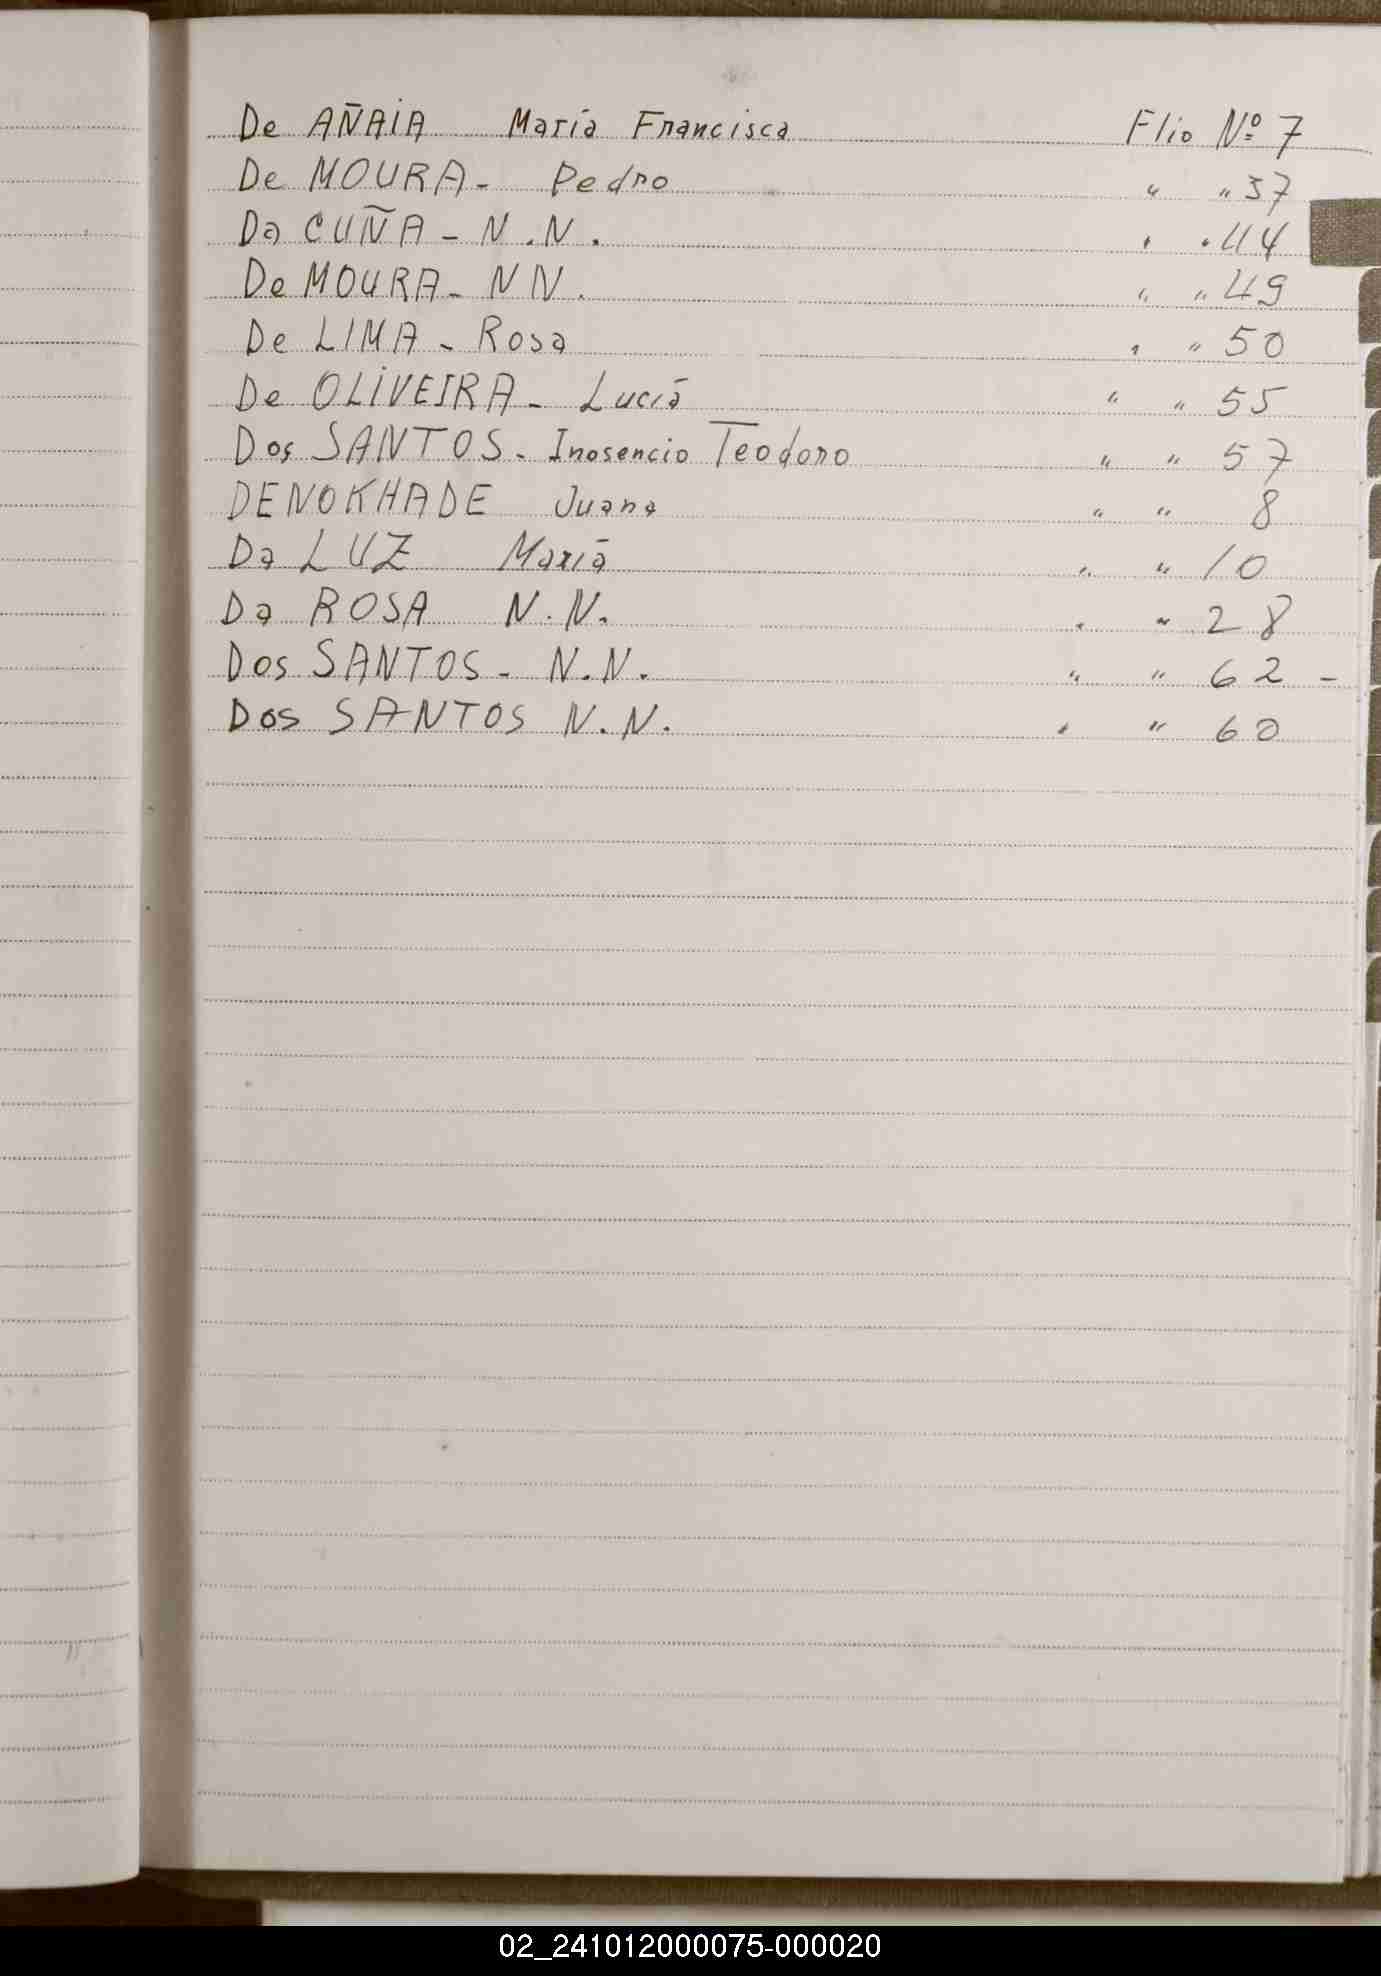 De AÑAIA María Francisca Flio Nº 7
De MOURA - Pedro " " 37
Da CUÑA - N.N. " " 44
De MOURA - NN. " " 49
De LIMA - Rosa " " 50
De OLIVEIRA - Lucía " " 55
Dos SANTOS - Inosencio Teodoro " " 57
DENOKHADE Juana " " 8
Da LUZ María " " 10
Da ROSA N.N. " " 28
Dos SANTOS - N.N. " " 62 -
Dos SANTOS N.N. " " 60
02_241012000075-000020